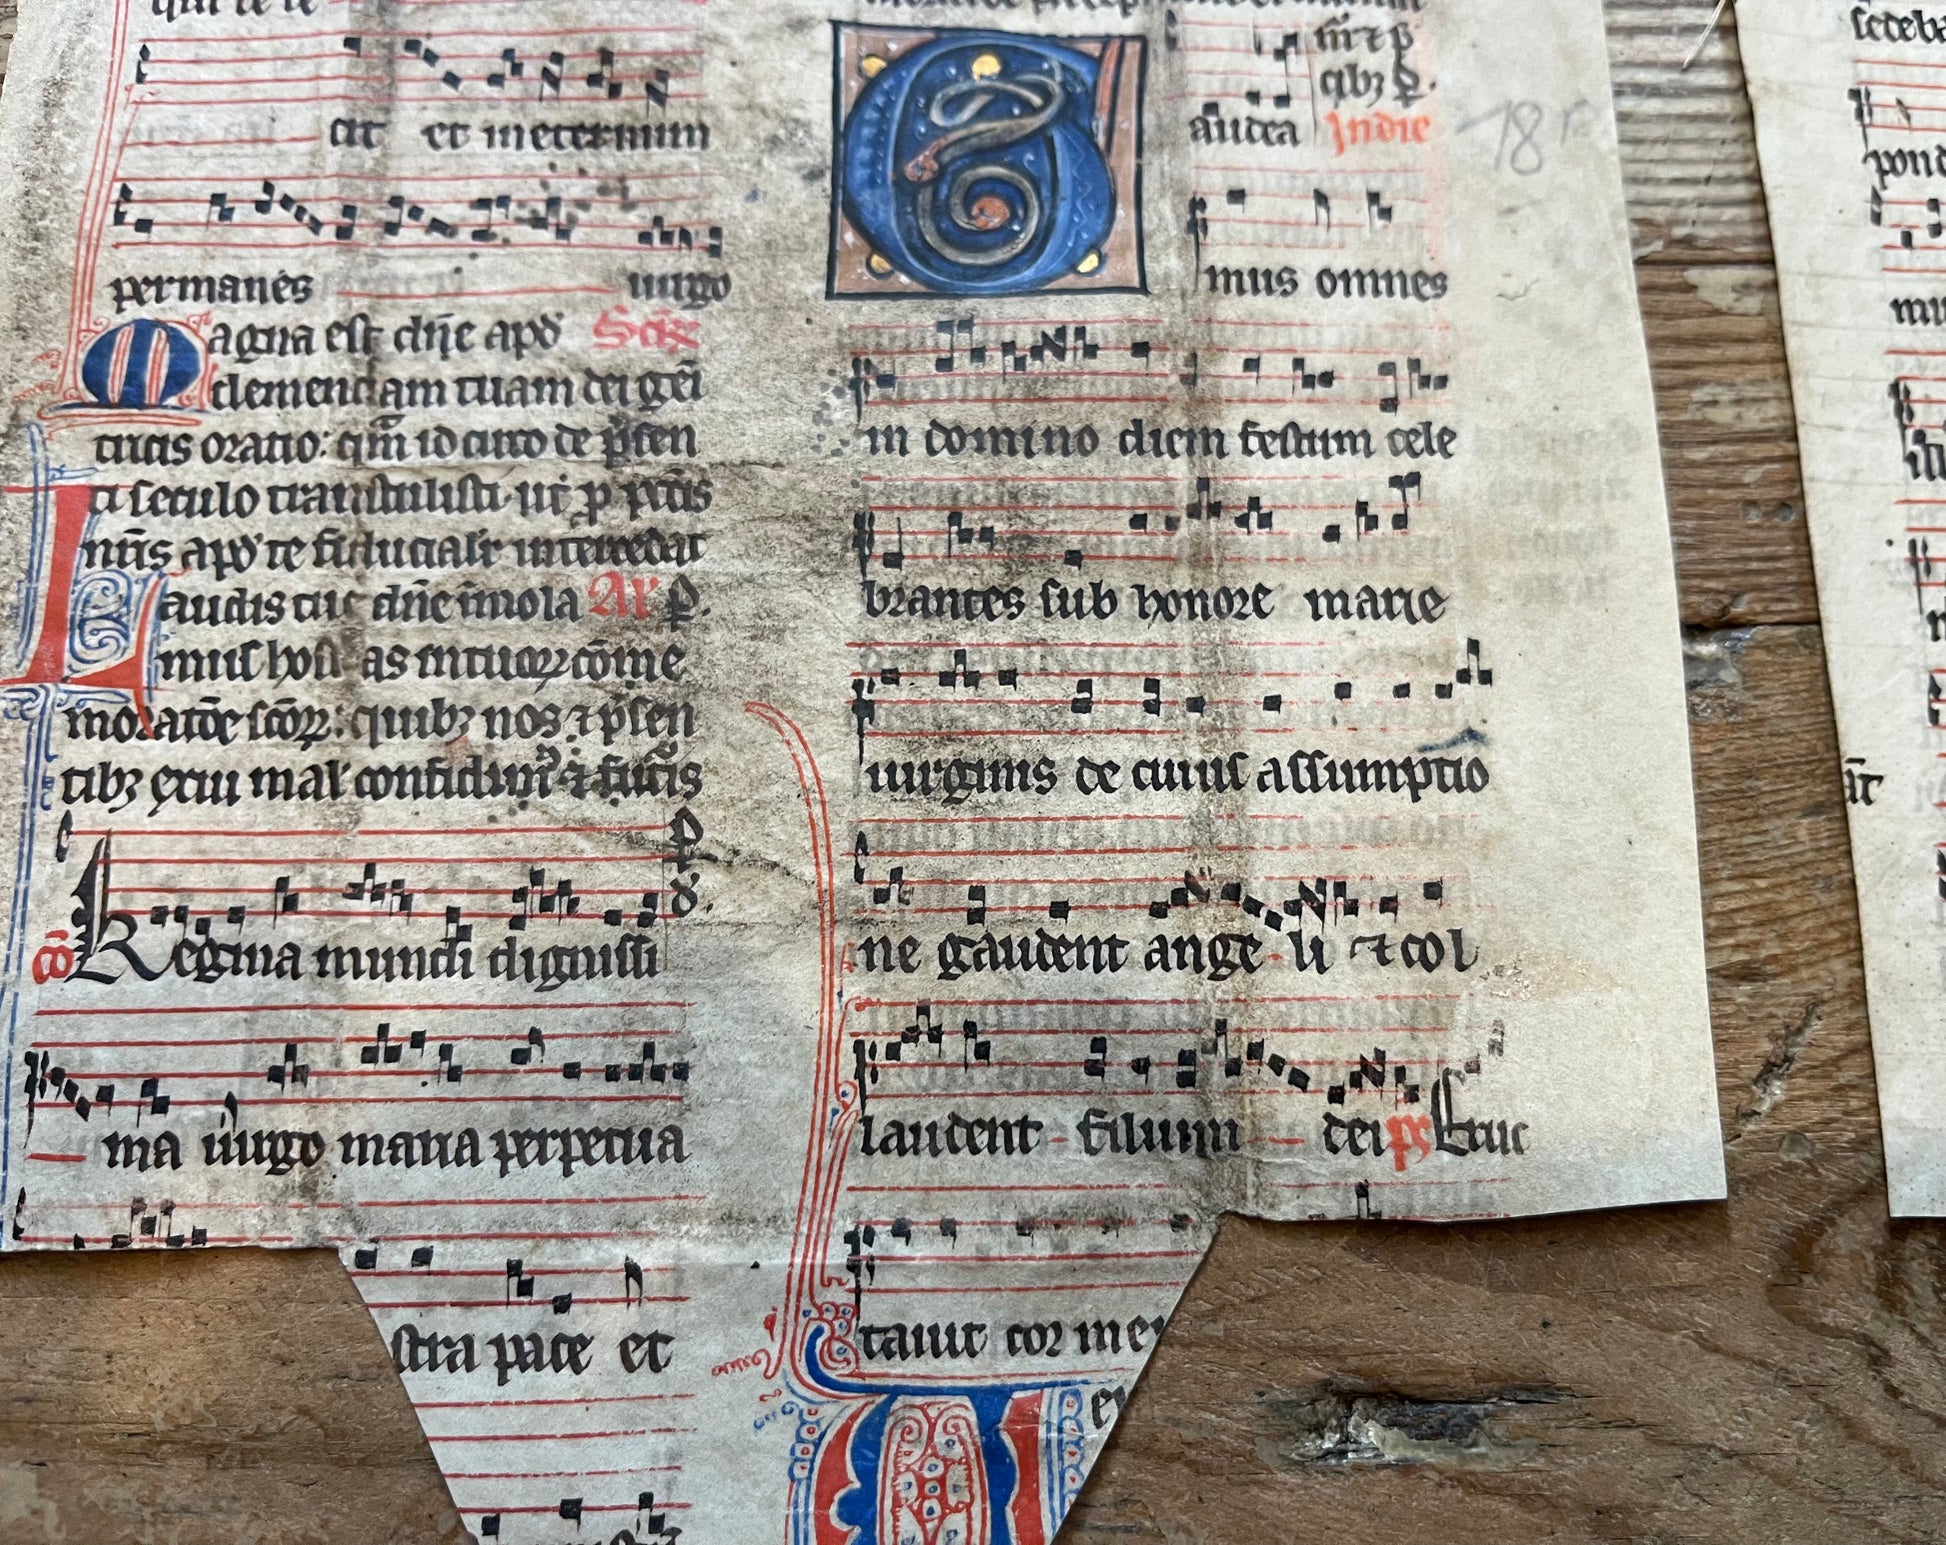 cit et in eternum
permanes uirgo
Magna est dñe apd̕ Sec̃r
clemenciam tuam dei geñi
tricis oratio: q̃m idcirco de p̃sen
ti seculo transtulisti ut p pctĩs
nr̃is apd̕ te fiducialr̃ intercedat
Laudis tue dñe ĩmola Ał P.
mus hostias in tuorꝝ cõme
moratõe sc̃orꝝ: quibꝫ nos ⁊ p̃sen
tibꝫ exui mal̕ confidim̕ ⁊ futĩs
P
d̕.
cõ Regina mundi dignissi
ma uirgo maria perpetua
stra pace et
m̃r ⁊ p̃
qibꝫ P.
Gaudea In die
mus omnes
in domino diem festum cele
brantes sub honore marie
uirginis de cuius assumptio
ne gaudent angeli ⁊ col
laudent filium dei ps Eruc
tauit cor me
18 r
pon
mu